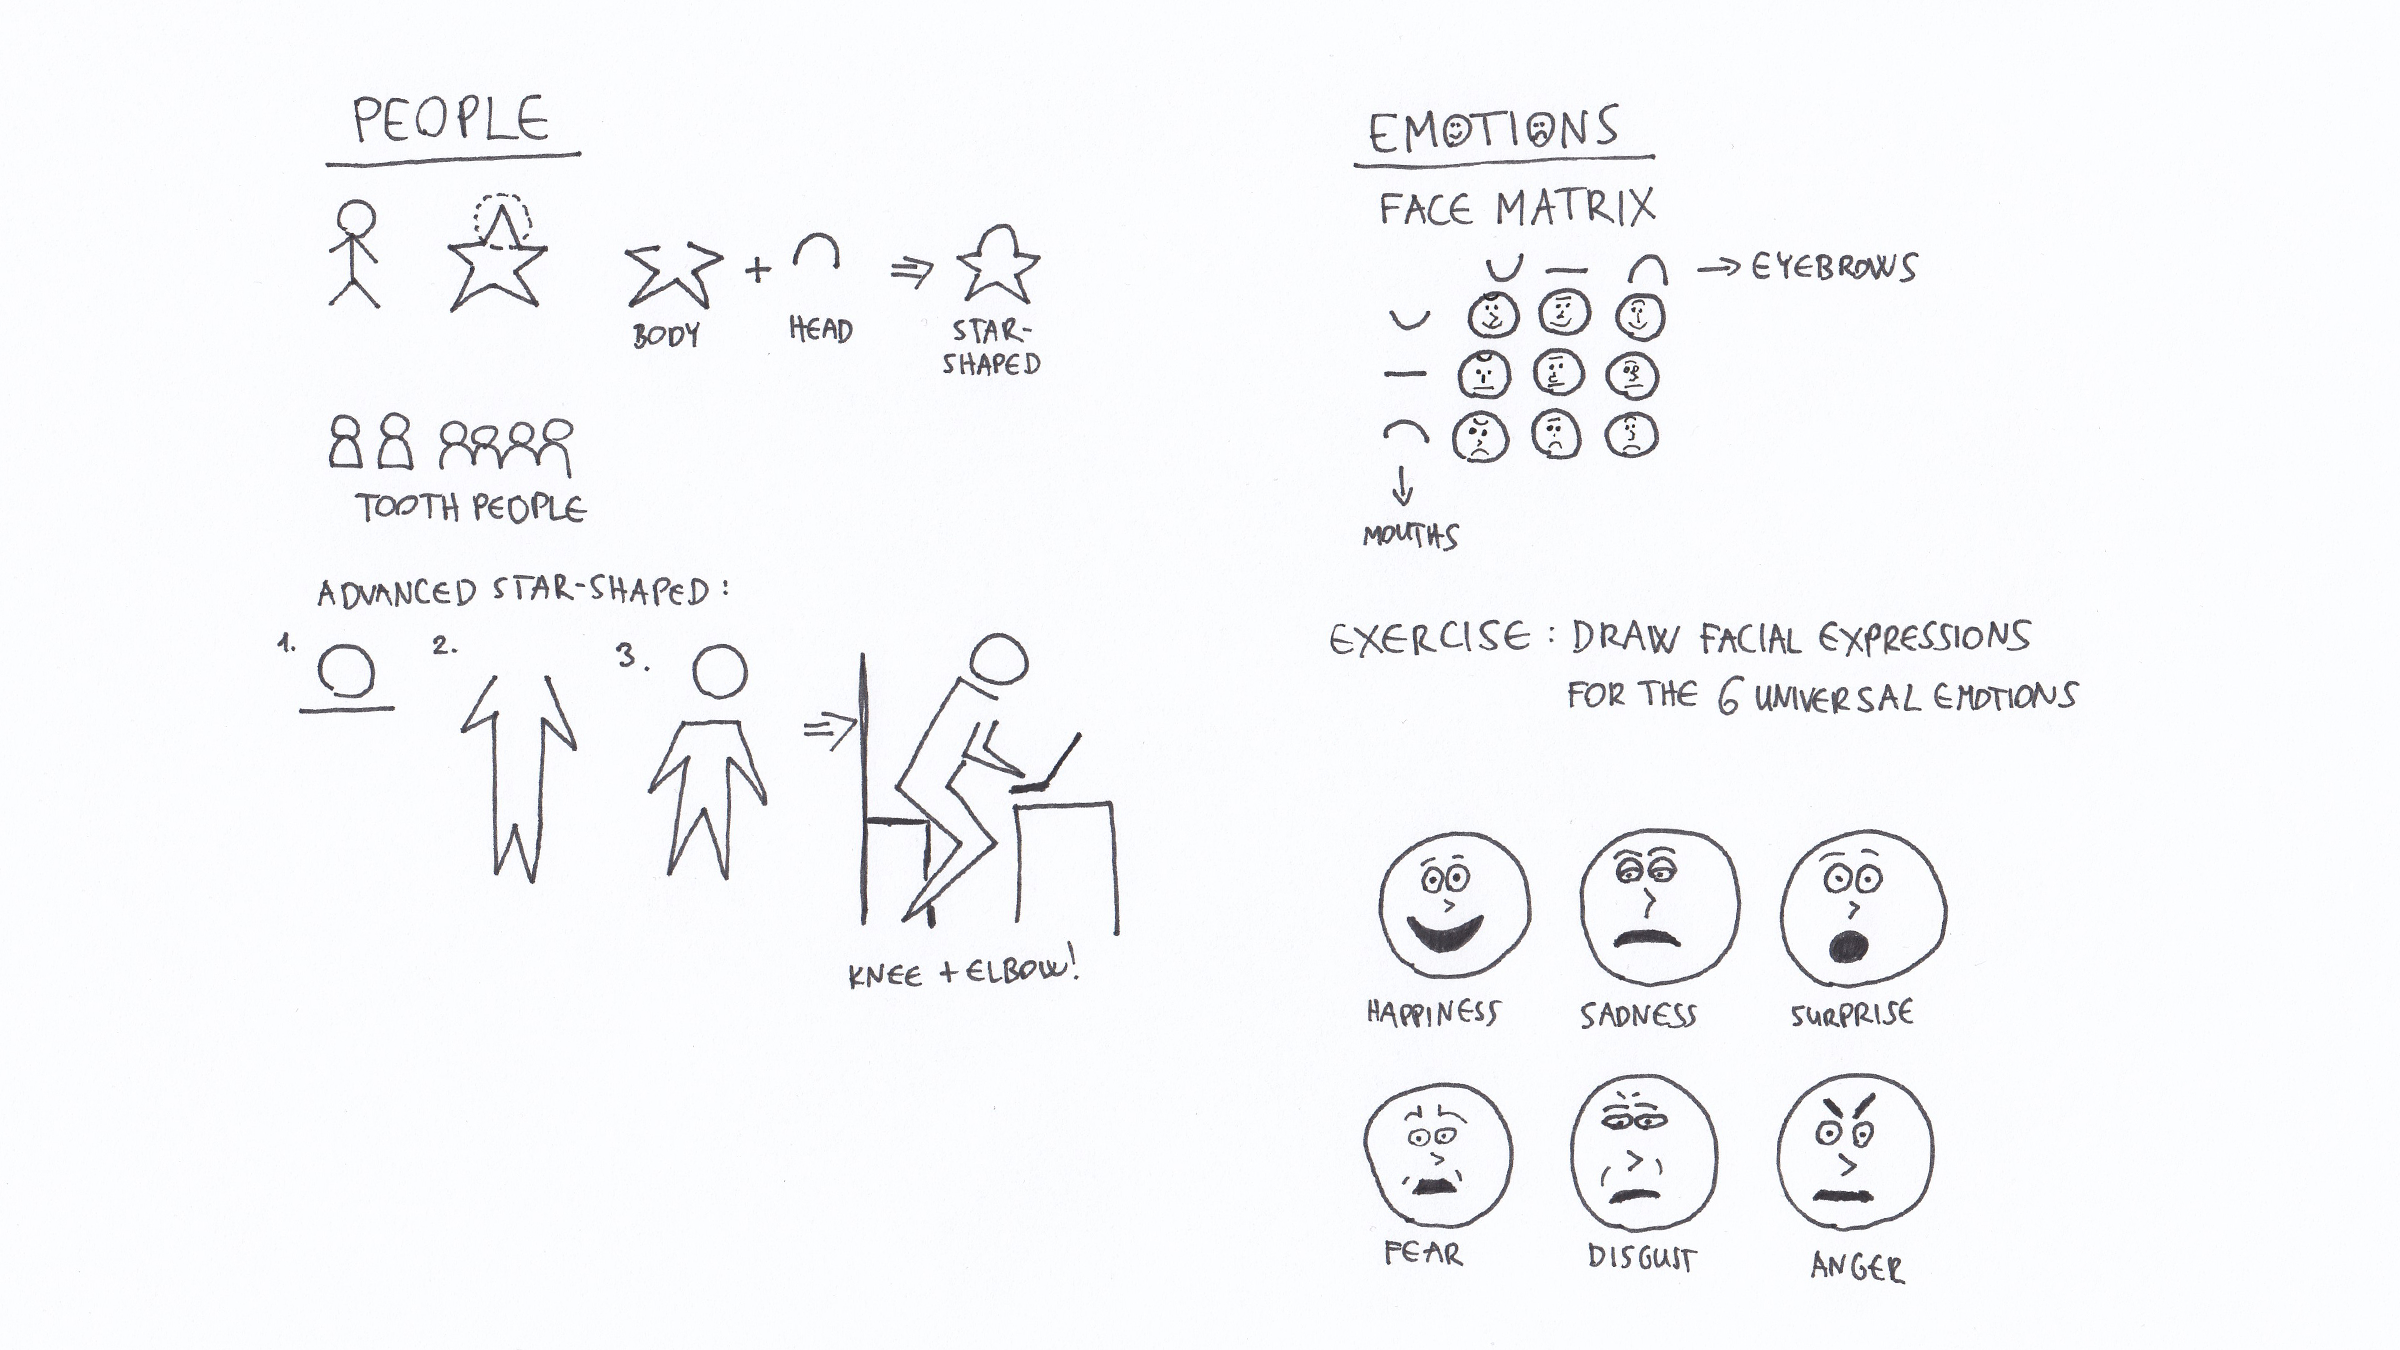 PEOPLE
+
BODY
HEAD
STAR-
SHAPED
TOOTH PEOPLE
ADVANCED STAR-SHAPED:
1.
2.
3.
KNEE + ELBOW!
EMOTIONS
FACE MATRIX
EYEBROWS
MOUTHS
EXERCISE: DRAW FACIAL EXPRESSIONS
FOR THE 6 UNIVERSAL EMOTIONS
HAPPINESS
SADNESS
SURPRISE
FEAR
DISGUST
ANGER